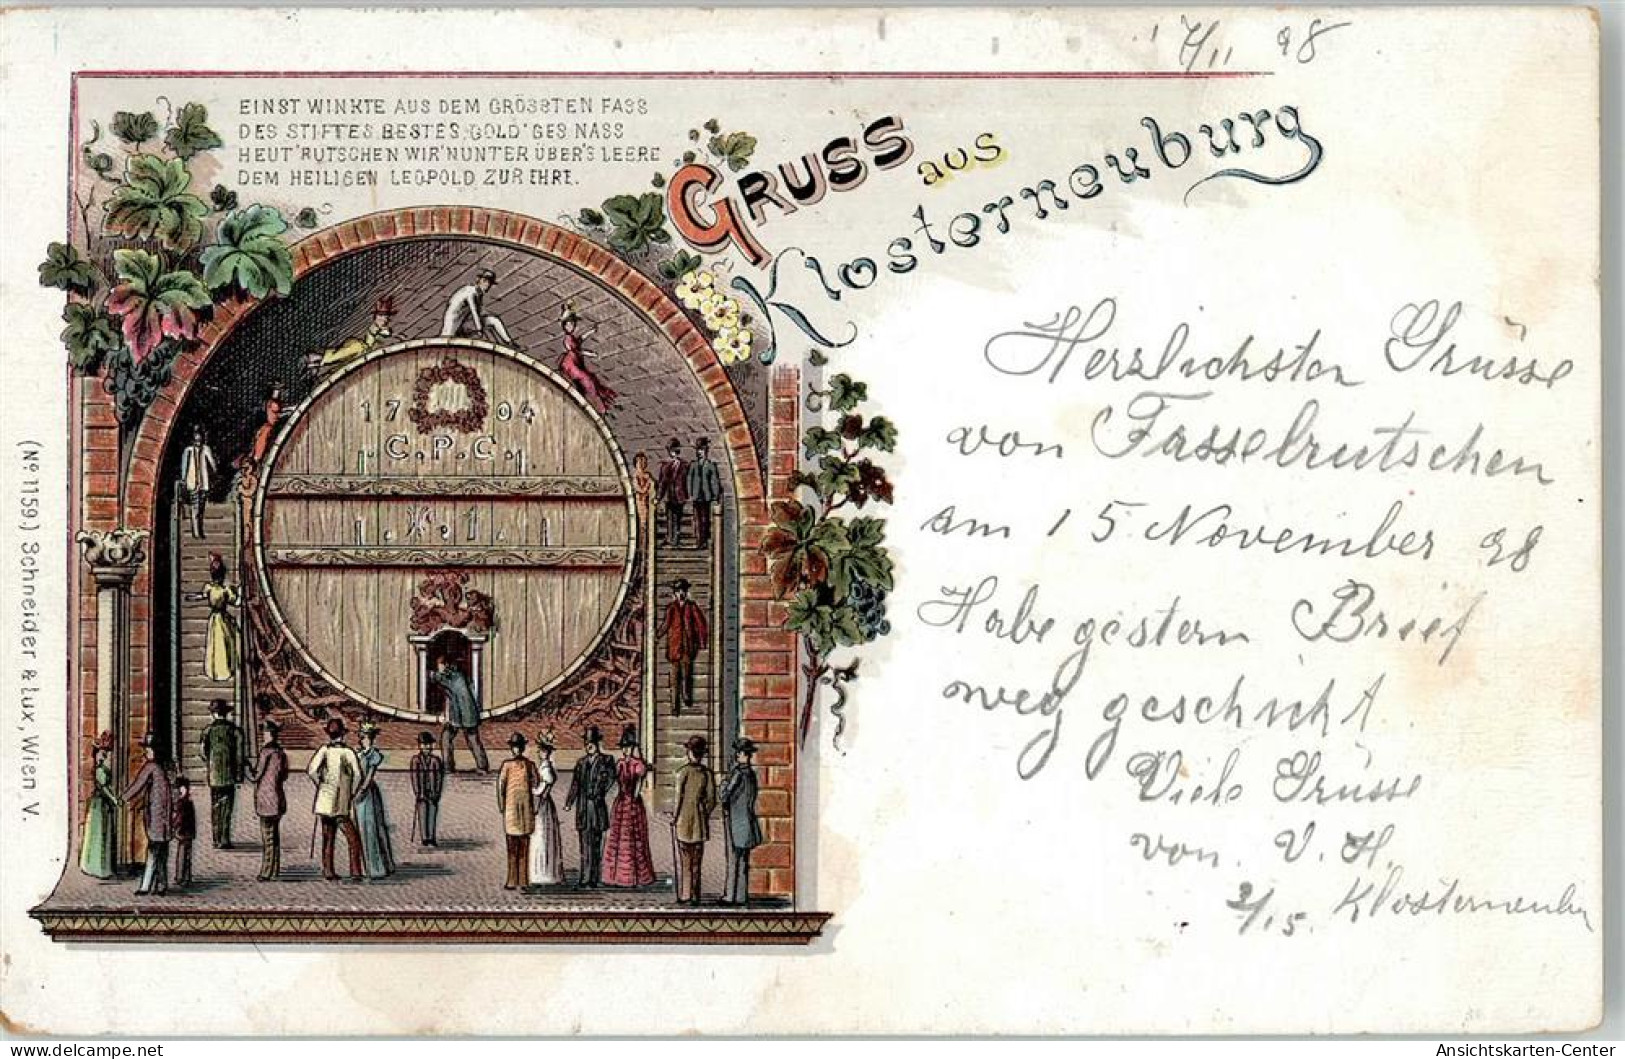 17/11 98
EINST WINKTE AUS DEM GRÖSSTEN FASS
DES STIFTES BESTES, GOLD'GES NASS
HEUT'RUTSCHEN WIR'NUNTER ÜBER'S LEERE
DEM HEILIGEN LEOPOLD ZUR EHRE.
GRUSS aus
Klosterneuburg
17 04
C.P.C.
N. 1.
(No 1159.) Schneider & Lux, Wien V.
Herzlichsten Grüsse
von Fasselrutschen
am 15. November 98
Habe gestern Brief
weg geschickt.
Viele Grüsse
von V. H.
/15. Klosterneubu
delcampe.net
Ansichtskarten-Center